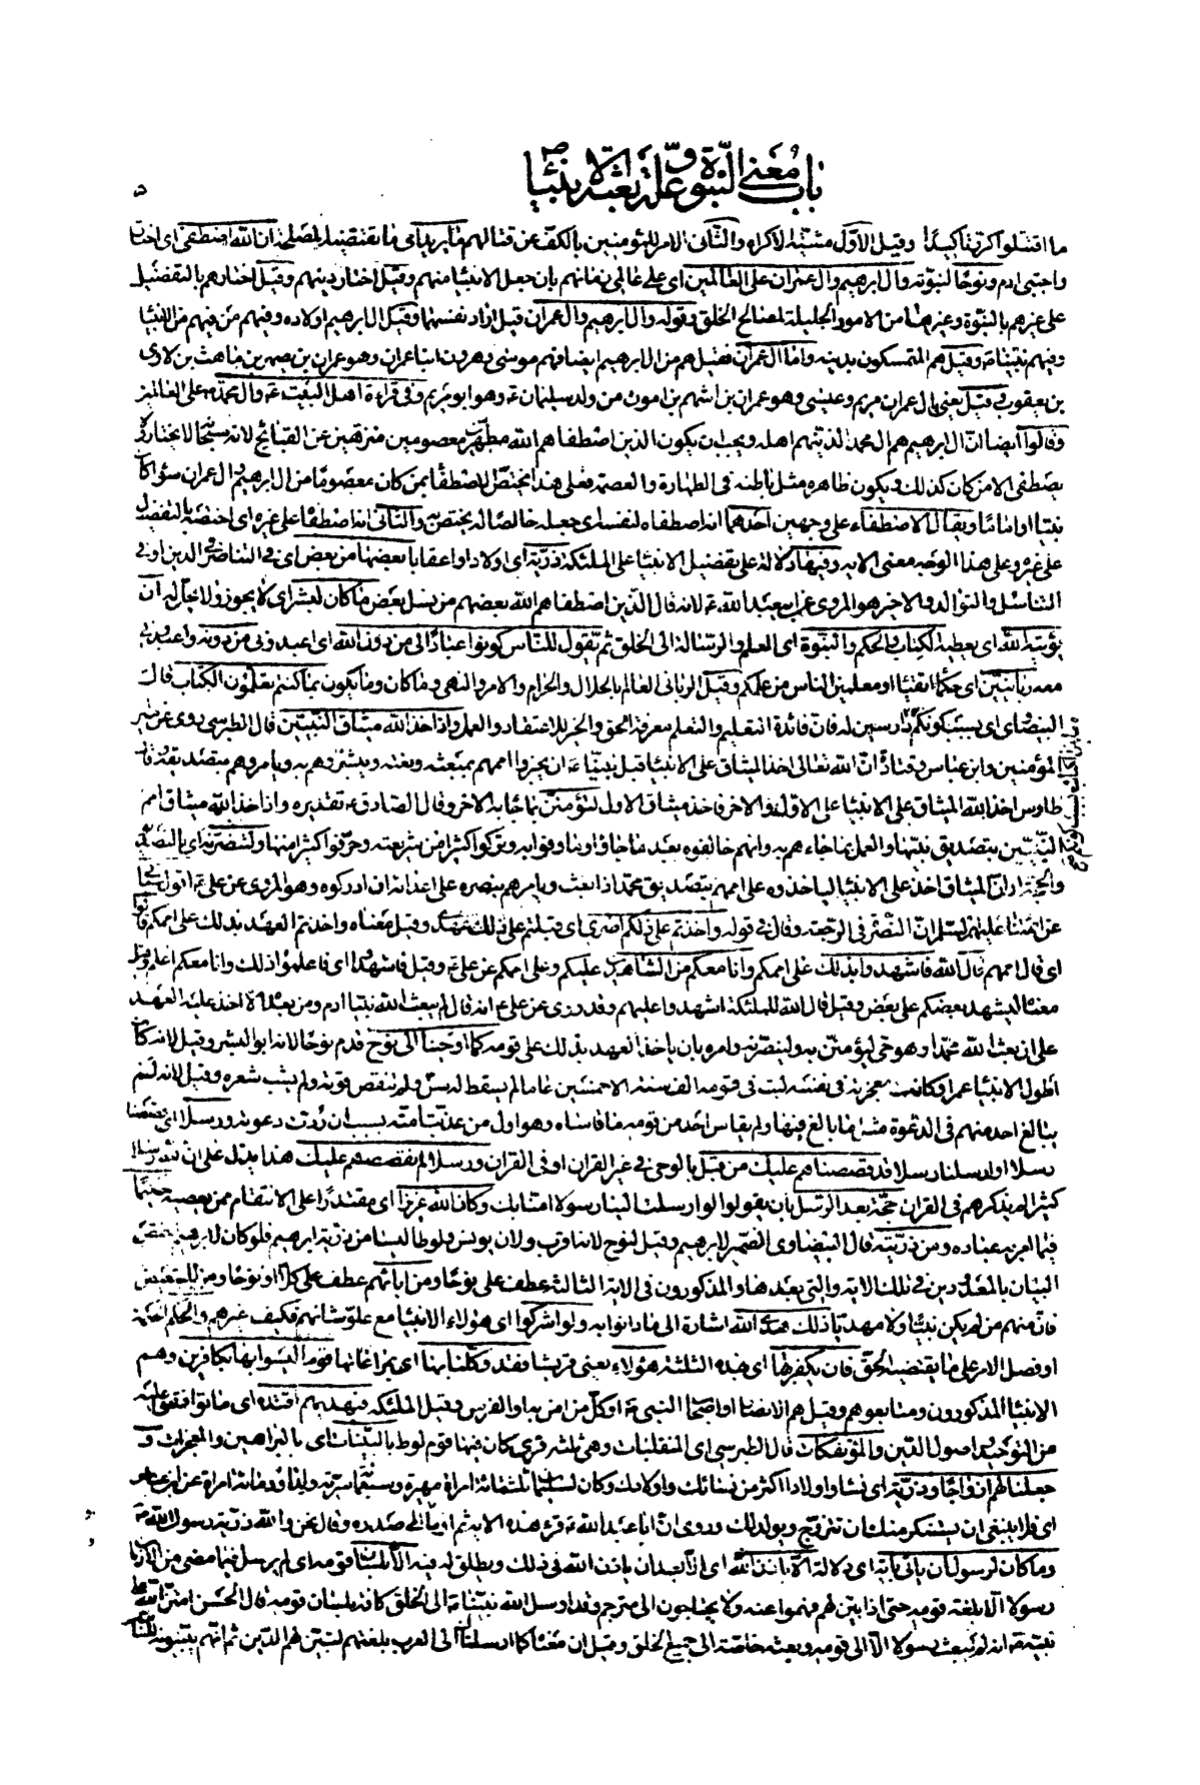 باب معنى النبوة وعلة بعثة الانبياء
٥
ما اقتتلوا كرر تأكيدا وقيل الاول مشية الاكراه والثانى الامر للمؤمنين بالكف عن قتالهم ما يريد اى ما تقتضيه المصلحة ان الله اصطفى اى اختار
واجتبى ادم ونوحا لنبوته وال ابرهيم وال عمران على العالمين اى على عالمى زمانهم بان جعل الانبيا منهم وقيل اختار دينهم وقيل اختارهم بالتفضيل
على غيرهم بالنبوة وغيرها من الامور الجليلة لمصالح الخلق وقوله وال ابرهيم وال عمران قيل اراد نفسهما وقيل ال ابرهيم اولاده وفيهم من فيهم من الانبيا
وفيهم نبينا وقيل هم المتمسكون بدينه واما ال عمران فقيل هم من ال ابرهيم ايضا فهم موسى وهرون ابنا عمران وهو عمران بن يصهر بن قاهث بن لاوى
بن يعقوب وقيل يعنى بال عمران مريم وعيسى وهو عمران بن اشهم بن امون من ولد سليمان وهو ابو مريم وفى قراءة اهل البيت وال محمد على العالمين
وقالوا ايضا ان ال ابرهيم هم ال محمد الذينهم اهله ويجب ان يكون الذين اصطفاهم الله مطهرين معصومين منزهين عن القبائح لانه سبحانه لا يختار ولا
يصطفى الا من كان كذلك ويكون ظاهره مثل باطنه فى الطهارة والعصمة فعلى هذا يختص الاصطفا بمن كان معصوما من ال ابرهيم وال عمران سواء كان
نبيا او اماما ويقال الاصطفاء على وجهين احدهما انه اصطفاه لنفسه اى جعله خالصا له يختص به والثانى انه اصطفاه على غيره اى اختصه بالتفضيل
على غيره وعلى هذا الوجه معنى الاية وفيها دلالة على تفضيل الانبيا على الملئكة ذرية اى اولادا واعقابا بعضها من بعض اى فى التناصر فى الدين او فى
التناسل والتوالد والاخير هو المروى عن ابى عبد الله لانه قال الذين اصطفاهم الله بعضهم من نسل بعض ما كان لبشر اى لا يجوز ولا يحل له ان
يؤتيه الله اى يعطيه الكتاب والحكم والنبوة اى العلم والرسالة الى الخلق ثم يقول للناس كونوا عبادا لى من دون الله اى اعبدونى من دونه واعبدونى
معه ربانيين اى حكما اتقيا او معلمين الناس من علمكم وقيل الربانى العالم بالحلال والحرام والامر والنهى وما كان وما يكون بما كنتم تعلمون الكتاب قال
البيضاوى اى بسبب كونكم دارسين له فان فائدة التعليم والتعلم معرفة الحق والخير للاعتقاد والعمل واذ اخذ الله ميثاق النبيين قال الطبرسى روى عن امير
المؤمنين وابن عباس وقتادة ان الله تعالى اخذ الميثاق على الانبيا قبل نبينا ان يخبروا اممهم بمبعثه ونعته ويبشروهم به ويامروهم بتصديقه وقال
طاوس اخذ الله الميثاق على الانبيا على الاول والاخر فاخذ ميثاق الاول لتؤمنن بما جا به الاخر وقال الصادق تقديره واذ اخذ الله ميثاق امم
النبيين بتصديق نبيها والعمل بما جاءهم به وانهم خالفوه بعد ما جاؤا وما وفوا به وتركوا كثيرا من شريعته وحرفوا كثيرا منها ولتنصرنه اى بالتصديق
والحجة او ان الميثاق اخذ على الانبيا لياخذوه على اممهم بتصديق محمد اذا بعث ويامرهم بنصره على اعدائه ان ادركوه وهو المروى عن على اقول
اى قال اممهم قال الله فاشهدوا بذلك على اممكم وانا معكم من الشاهدين عليكم وعلى اممكم عن على وقيل فاشهدوا اى فاعلموا ذلك وانا معكم اعلم وقيل
معناه ليشهد بعضكم على بعض وقيل قال الله للملئكة اشهدوا عليهم وقد روى عن على انه قال لم يبعث الله نبيا ادم ومن بعده الا اخذ عليه العهد
على ان بعث الله محمدا وهو حى ليؤمنن به ولينصرنه وامره بان ياخذ العهد بذلك على قومه كما اوحينا الى نوح قدم نوحا لانه ابو البشر وقيل لانه كان
اطول الانبيا عمرا وكانت معجزته فى نفسه لبث فى قومه الف سنة الا خمسين عاما لم يسقط له سن ولم تنقص قوته ولم يشب شعره وقيل لانه لم
يبالغ احد منهم فى الدعوة مثل ما بالغ فيها ولم يقاس احد من قومه ما قاساه وهو اول من عذبت امته بسبب ان ردت دعوته ورسلا اى قصصنا
رسلا او ارسلنا رسلا قد قصصناهم عليك من قبل بالوحى فى غير القران او فى القران ورسلا لم نقصصهم عليك هذا يدل على ان لله رسلا
كثيرا لم يذكرهم فى القران حجة بعد الرسل بان يقولوا لو ارسلت الينا رسولا امنا بك وكان الله عزيزا اى مقتدرا على الانتقام ممن يعصيه حكيما
فيما امر به عباده ومن ذريته قال البيضاوى الضمير لابرهيم وقيل لنوح لانه اقرب ولان يونس ولوطا ليسا من ذرية ابرهيم فلو كان لابرهيم اختص
البيان بالمعدودين فى تلك الاية والتى بعدها والمذكورون فى الاية الثالثة عطف على نوحا ومن ابائهم عطف على كلا او نوحا ومن للتبعيض
فان منهم من لم يكن نبيا ولا مهديا ذلك هدى الله اشارة الى ما دانوا به ولو اشركوا اى هؤلاء الانبيا مع علو شانهم فكيف غيرهم والحكم الحكمة
او فصل الامر على ما يقتضيه الحق فان يكفر بها اى بهذه الثلثة هؤلاء يعنى قريشا فقد وكلنا بها اى بمراعاتها قوما ليسوا بها بكافرين وهم
الانبيا المذكورون ومتابعوهم وقيل هم الانصار او اصحاب النبى او كل من امن به او الفرس وقيل الملئكة فبهديهم اقتده اى ما توافقوا عليه
من التوحيد واصول الدين والمؤتفكات قال الطبرسى اى المنقلبات وهى ثلث قرى كان فيها قوم لوط بالبينات اى بالبراهين والمعجزات و
جعلنا لهم ازواجا وذرية اى نساء واولادا اكثر من نسائك واولادك وكان لسليمان ثلثمائة امراة مهيرة وسبعمائة سرية ولداود مائة امراة عن ابن عباس
اى فلا ينبغى ان يستنكر منك ان تتزوج ويولد لك وروى ان ابا عبد الله قرء هذه الاية ثم اومأ الى صدره وقال نحن والله ذرية رسول الله
وما كان لرسول ان ياتى باية اى دلالة الا باذن الله اى الا بعد ان ياذن الله فى ذلك ويطلق له فيه الا بلسان قومه اى لم يرسل فيما مضى من الازمان
رسولا الا بلغة قومه حتى اذا بين لهم فهموا عنه ولا يحتاجون الى مترجم وقد ارسل الله نبينا الى الخلق كافة بلسان قومه قال الحسن امتن الله على
نبيه انه لم يبعث رسولا الا الى قومه وبعثه خاصة الى جميع الخلق وقيل ان معناه كما ارسلناك الى العرب بلغتهم لتبين لهم الدين ثم انهم يبينونه للناس